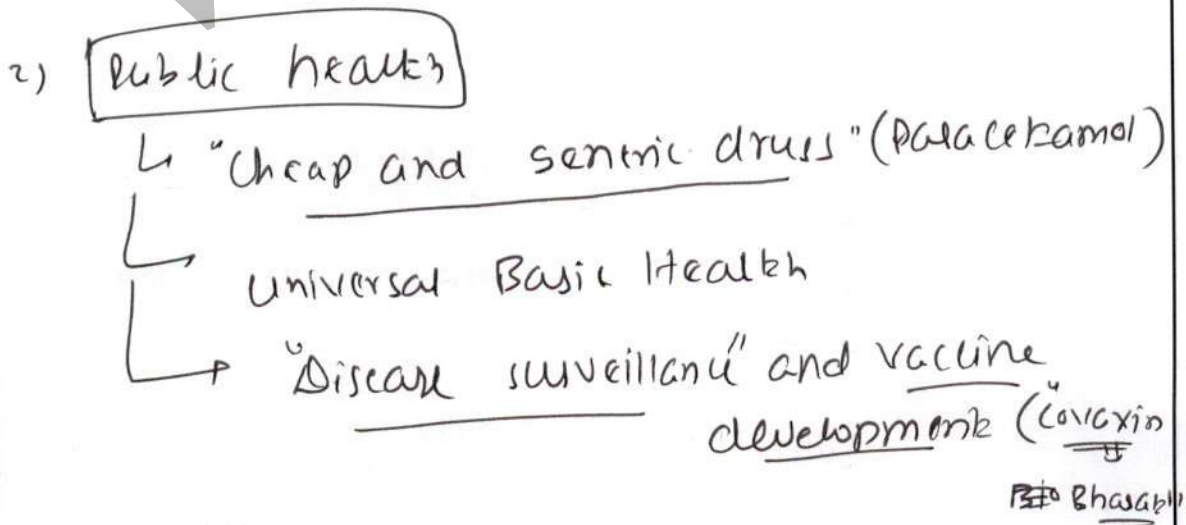 2) Public health
"Cheap and generic drugs" (Paracetamol)
Universal Basic Health
"Disease surveillance" and vaccine
development ("Covaxin
Bharat"